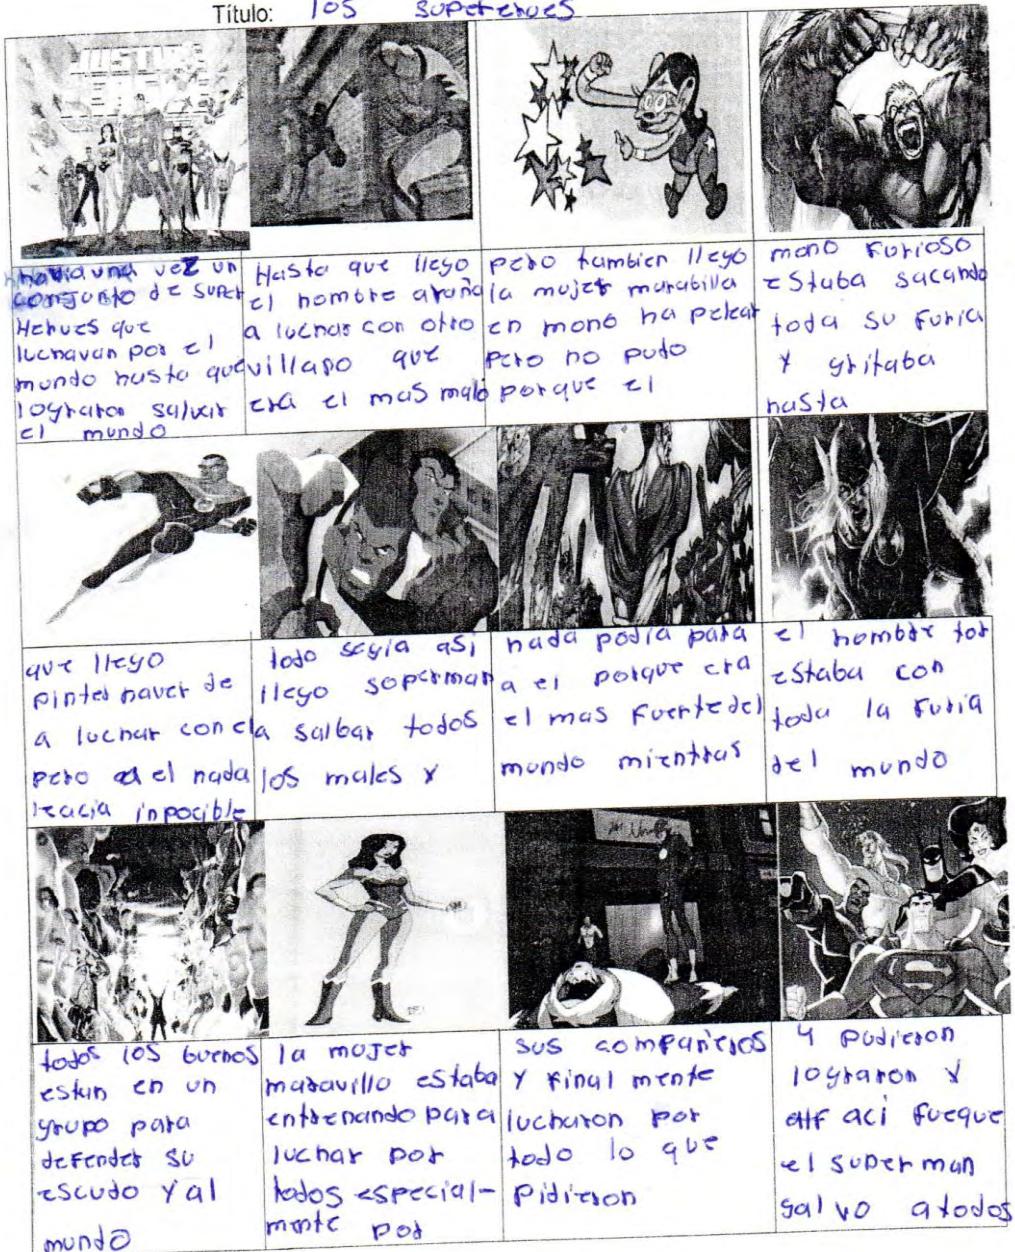 Título: los superehues
JUSTICE
havia una vez un
conjunto de super
Hehues que
luchavan por el
mundo husto que
lograron salvar
el mundo
Hasta que llego
el hombre araña
a luchar con otro
villano que
era el mas malo
pero tambien llegó
la mujer murabilla
en mono ha pelear
pero no pudo
porque el
mono Furioso
estaba sacando
toda su furia
y gritaba
hasta
que llego
pinter naver de
a luchar con el
pero a el nada
leacia inpocible
todo seguia asi
llego soperman
a salbar todos
los males y
nada podia para
a el porque era
el mas fuerte del
mundo mientras
el hombre tor
estaba con
toda la furia
del mundo
todos los buenos
estan en un
grupo para
defender su
escudo y al
mundo
la mujer
maravillo estaba
entrenando para
luchar por
todos especial-
mente por
sus compañeros
y final mente
lucharon por
todo lo que
pidieron
y pudieron
lograron y
aci fueque
el superman
salvo atodos